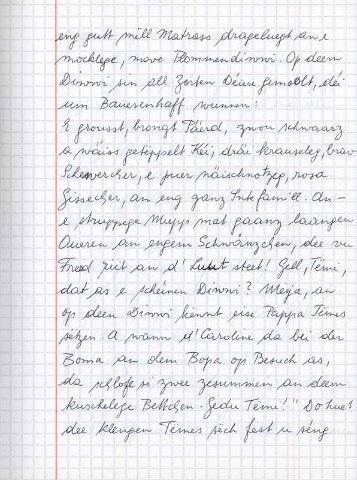 eng gutt mëll Matrass drageluegt an e
mocklege, move Blommendiwwi. Op deem
Diwwi sin all Zorten Déiere gemoolt, déi
um Bauerenhaff wunnen:
E grousst, brongt Päerd, zwou schwaarz
a wäiss getëppelt Kéi, dräi krauseleg, brav
e puer näischnotzeg, rosa
an eng ganz Intefamill. An
e struppege Mupp mat gaanz laangen
Oueren an engem Schwänzchen, dee vu
Freed riit an d'Luucht steet! Gell, Témi,
dat as e schéinen Diwwi? Meija, an
op deen Diwwi kënnt eise Pappa Témes
sëtzen. A wann d'Caroline da bei der
Boma an dem Bopa op Besuch as,
da schlofe si zwee zesummen an deem
kuschelege Bettchen. Gedu Témi!" Do huet
dee klengen Témes sech fest u séng